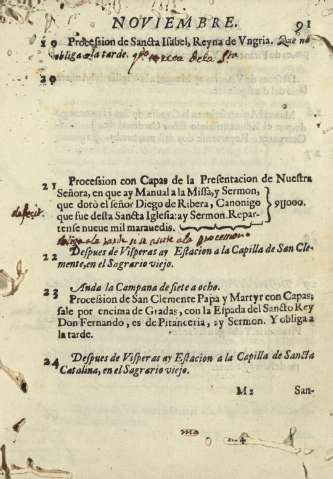 NOVIEMBRE. 91
19 Procession de Sancta Isabel, Reyna de Vngria. Que no
obliga a la tarde.
20
21 Procession con Capas de la Presentacion de Nuestra
Señora, en que ay Manual a la Missa, y Sermon,
que dotò el señor Diego de Ribera, Canonigo
que fue desta Sancta Iglesia: ay Sermon. Repar-
tense nueue mil marauedis.
9y000.
obliga a la tarde a la procession
22 Despues de Visperas ay Estacion a la Capilla de San Cle-
mente, en el Sagrario viejo.
Anda la Campana de siete a ocho.
23 Procession de San Clemente Papa y Martyr con Capas,
sale por encima de Gradas, con la Espada del Sancto Rey
Don Fernando, es de Pitanceria, ay Sermon. Y obliga a
la tarde.
24 Despues de Visperas ay Estacion a la Capilla de Sancta
Catalina, en el Sagrario viejo.
M2 San-